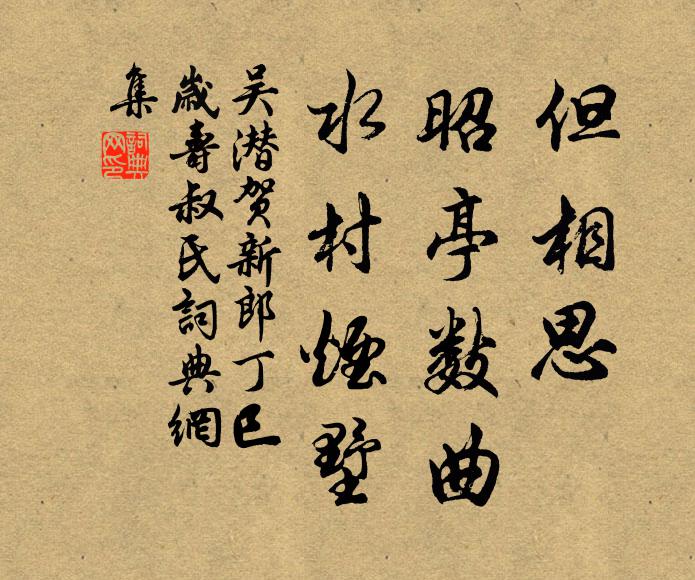 但相思
昭亭数曲
水村烟墅
吴潜贺新郎丁巳
岁寿叔氏詞典網
集
詞典網印